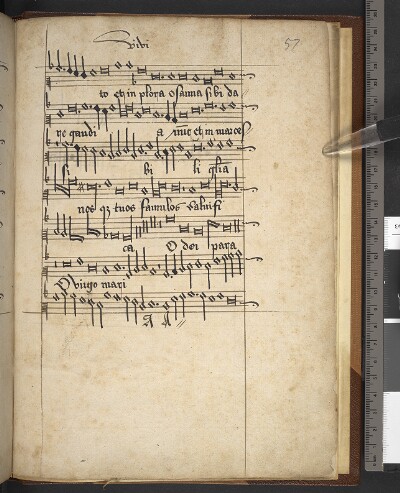 vidi
57
to et in plora osanna sibi da
re gaudi a
si bi li gl̄ia
nos qȝ tuos famulos salvifi
ca O dei para
O virgo mari
A A